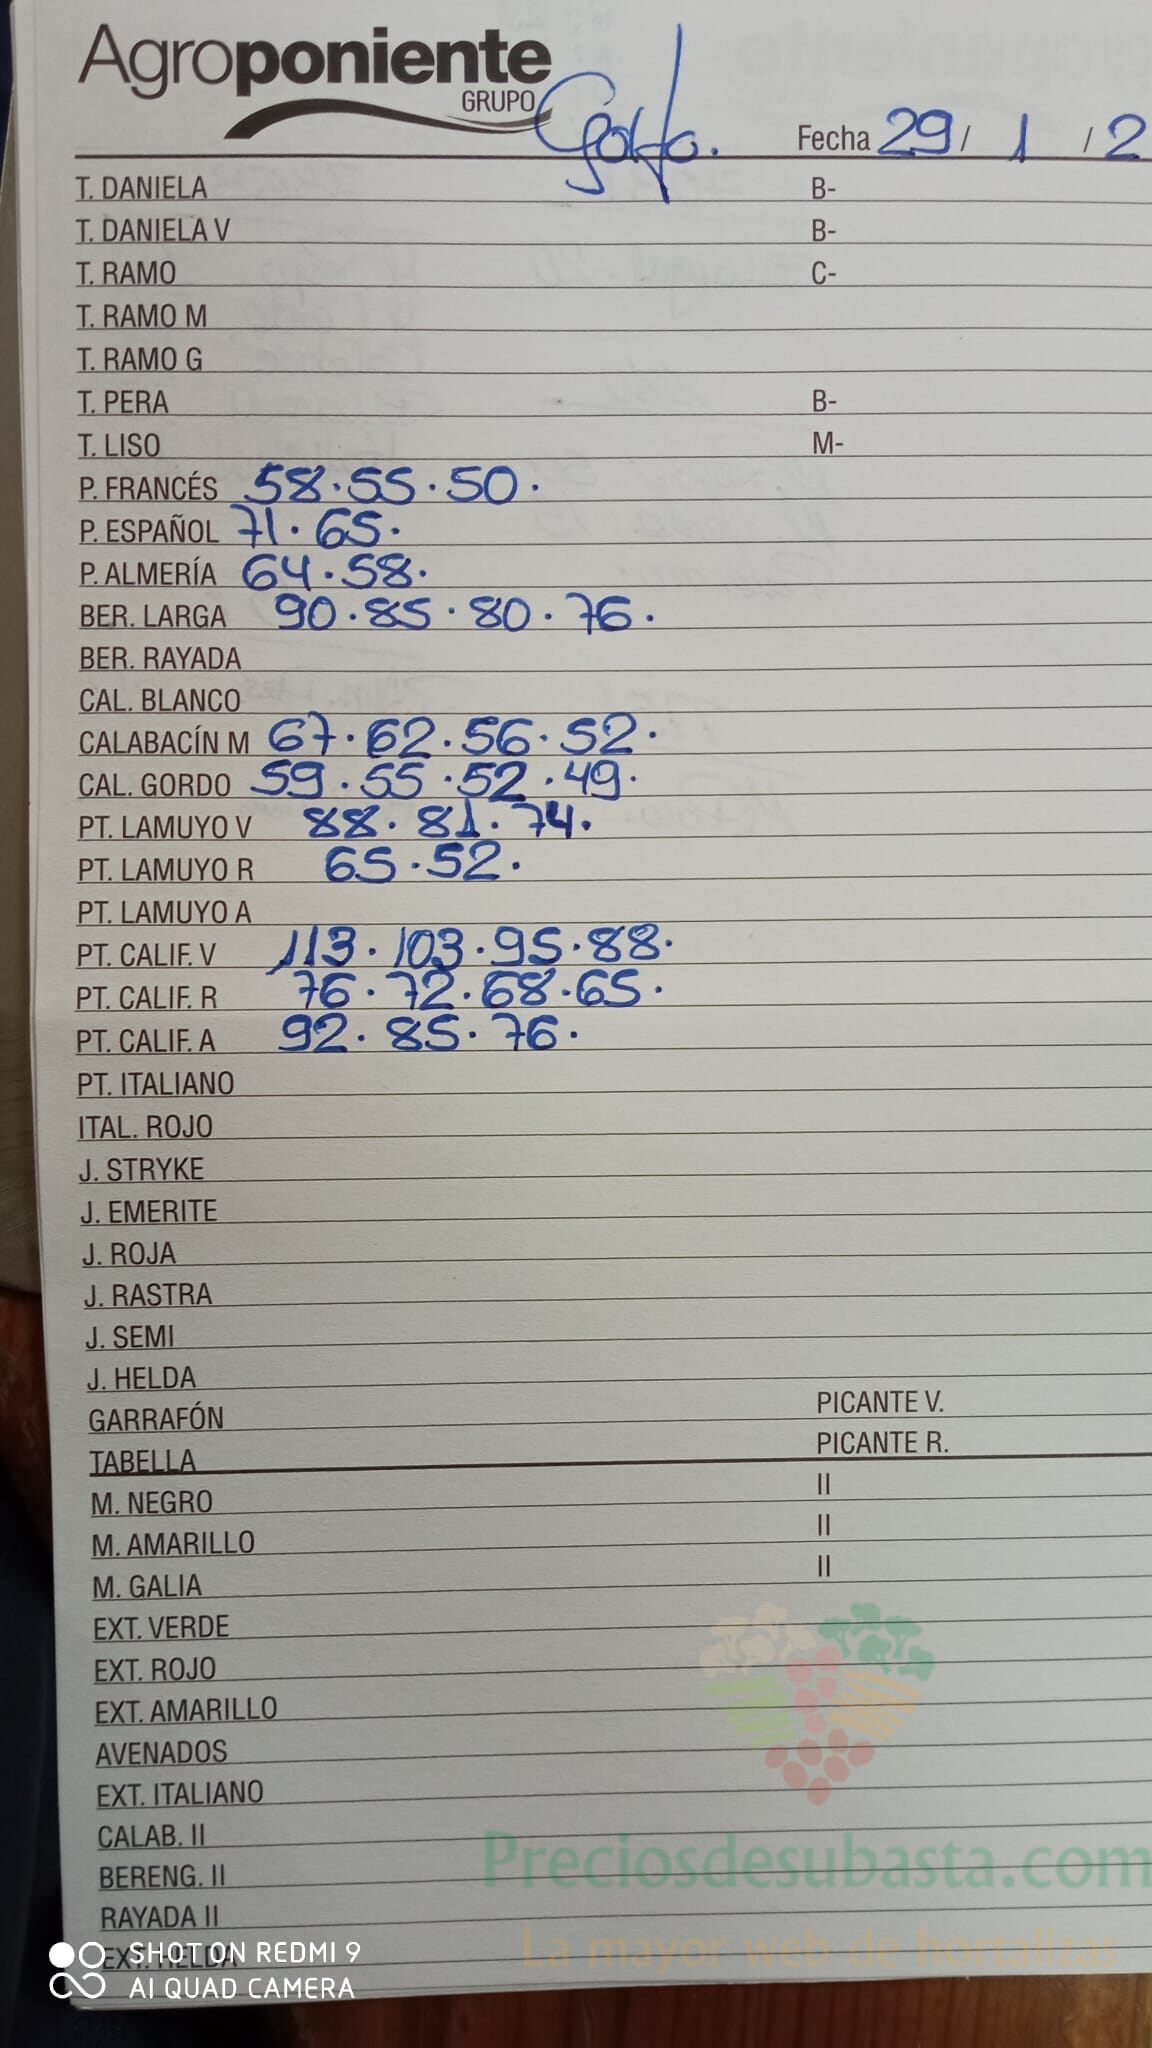 Agroponiente
GRUPO
Golfo.
Fecha 29/ 1 /2
T. DANIELA B-
T. DANIELA V B-
T. RAMO C-
T. RAMO M
T. RAMO G
T. PERA B-
T. LISO M-
P. FRANCÉS 58.55.50.
P. ESPAÑOL 71.65.
P. ALMERÍA 64.58.
BER. LARGA 90.85.80.76.
BER. RAYADA
CAL. BLANCO
CALABACÍN M 67.62.56.52.
CAL. GORDO 59.55.52.49.
PT. LAMUYO V 88.81.74.
PT. LAMUYO R 65.52.
PT. LAMUYO A
PT. CALIF. V 113.103.95.88.
PT. CALIF. R 76.72.68.65.
PT. CALIF. A 92.85.76.
PT. ITALIANO
ITAL. ROJO
J. STRYKE
J. EMERITE
J. ROJA
J. RASTRA
J. SEMI
J. HELDA
GARRAFÓN PICANTE V.
TABELLA PICANTE R.
M. NEGRO II
M. AMARILLO II
M. GALIA II
EXT. VERDE
EXT. ROJO
EXT. AMARILLO
AVENADOS
EXT. ITALIANO
CALAB. II
BERENG. II
RAYADA II
EXT. HELDA
Preciosdesubasta.com
La mayor web de hortalizas
SHOT ON REDMI 9
AI QUAD CAMERA